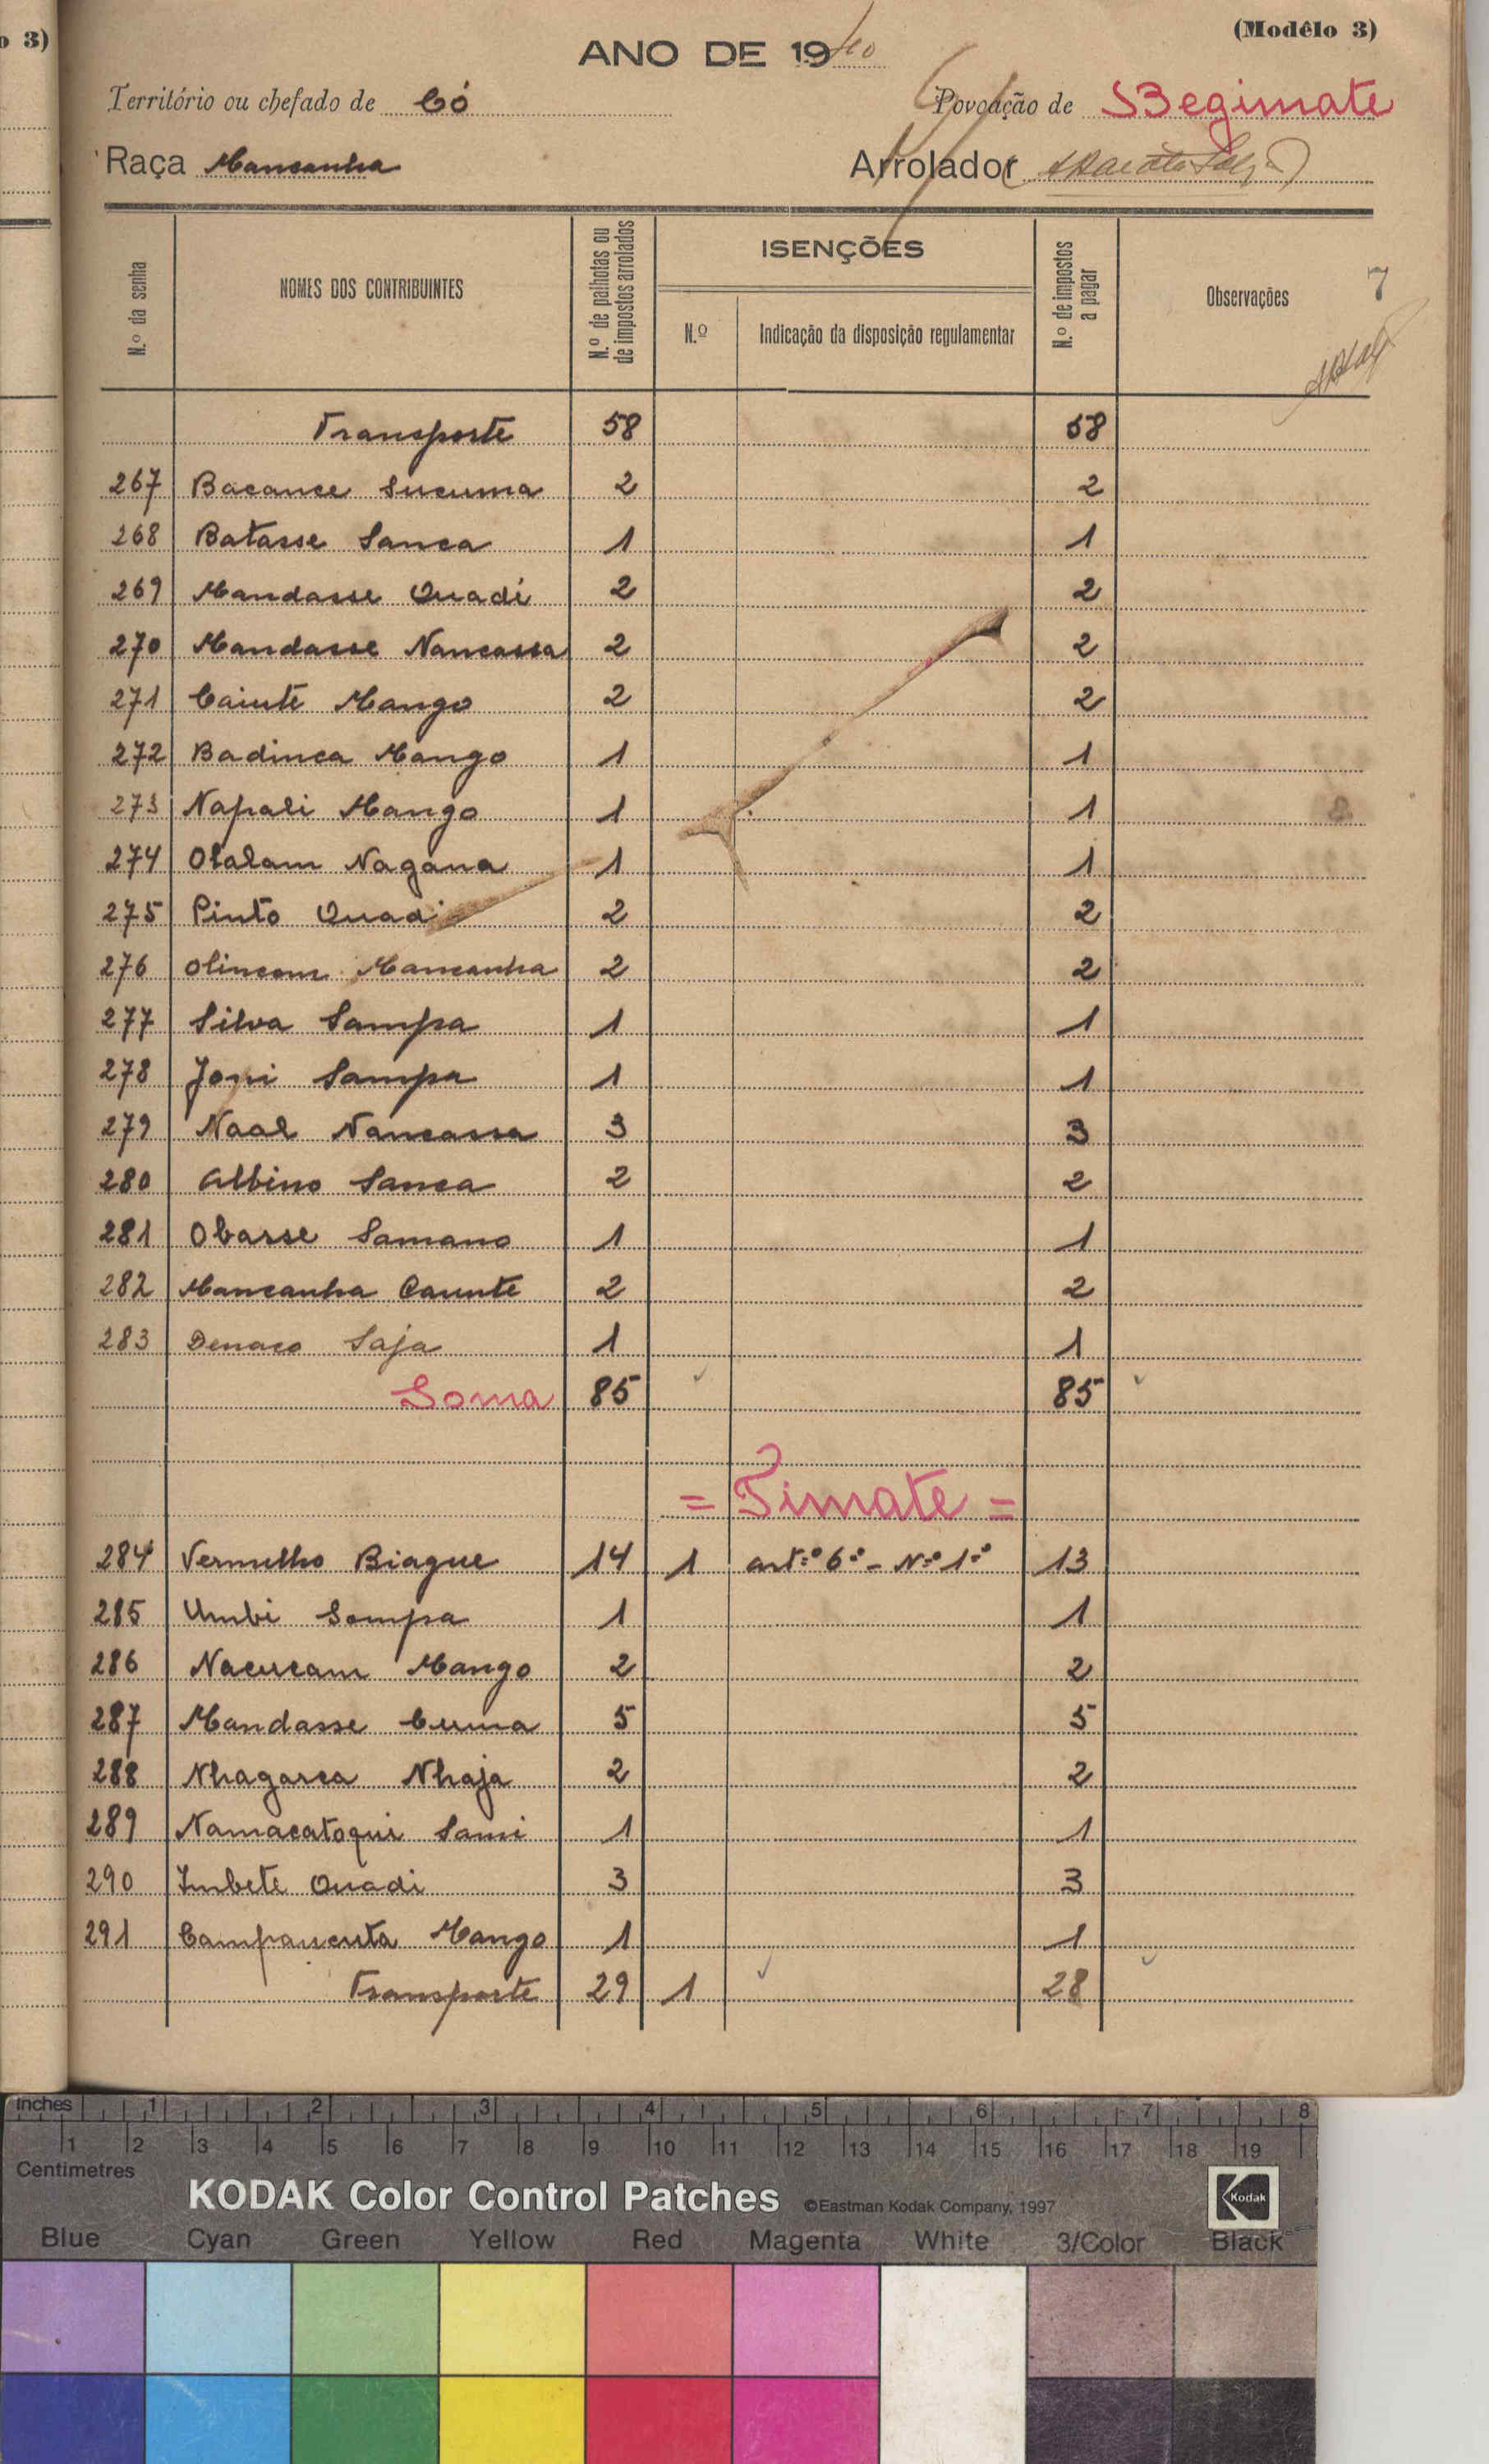 o 3)
(Modêlo 3)
ANO DE 1940
Território ou chefado de Có
Povoação de Begimate
Raça Mancanha
Arrolador
N.º da senha
NOMES DOS CONTRIBUINTES
N.º de palhotas ou de impostos arrolados
ISENÇÕES
N.º
Indicação da disposição regulamentar
N.º de impostos a pagar
Observações
7
Transporte 58 58
267 Bacance Sucuma 2 2
268 Batasse Sanca 1 1
269 Mandasse Quadi 2 2
270 Mandasse Nancassa 2 2
271 Cainte Mango 2 2
272 Badinca Mango 1 1
273 Napali Mango 1 1
274 Olalam Nagana 1 1
275 Pinto Quadi 2 2
276 Olincom Mancanha 2 2
277 Silva Sampa 1 1
278 Joni Sampa 1 1
279 Naal Nancassa 3 3
280 Albino Sanca 2 2
281 Obasse Samano 1 1
282 Mancanha Caunte 2 2
283 Denaco Saja 1 1
Soma 85 85
= Timate =
284 Vermelho Biague 14 1 art.º 6.º - N.º 1.º 13
285 Umbi Sampa 1 1
286 Nacucam Mango 2 2
287 Mandasse Cuma 5 5
288 Nhagarca Nhaja 2 2
289 Namacatoqui Sami 1 1
290 Imbete Quadi 3 3
291 Campamenta Mango 1 1
Transporte 29 1 28
Inches 1 2 3 4 5 6 7 8
1 2 3 4 5 6 7 8 9 10 11 12 13 14 15 16 17 18 19
Centimetres
KODAK Color Control Patches ©Eastman Kodak Company, 1997 Kodak
Blue Cyan Green Yellow Red Magenta White 3/Color Black